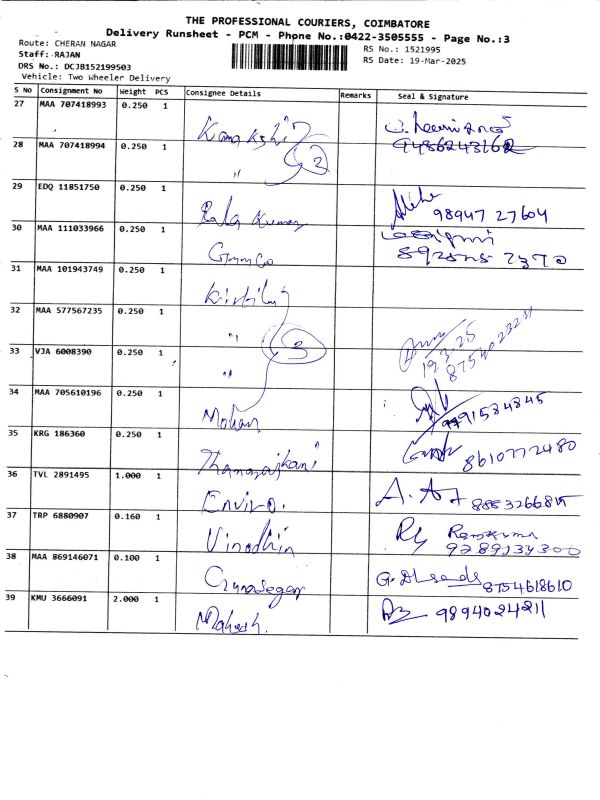 THE PROFESSIONAL COURIERS, COIMBATORE
Delivery Runsheet - PCM - Phpne No.:0422-3505555 - Page No.:3
Route: CHERAN NAGAR
Staff: RAJAN
DRS No.: DCJB152199503
Vehicle: Two Wheeler Delivery
RS No.: 1521995
RS Date: 19-Mar-2025
S No Consignment No Weight PCS Consignee Details Remarks Seal & Signature
27 MAA 707418993 0.250 1 Kamakshi
28 MAA 707418994 0.250 1 " 2 9486243162
29 EDQ 11851750 0.250 1 Bala Kumar 98947 27604
30 MAA 111033966 0.250 1
31 MAA 101943749 0.250 1
32 MAA 577567235 0.250 1 "
33 VJA 6008390 0.250 1 " 3 19.3.25
34 MAA 705610196 0.250 1 Mohan
35 KRG 186360 0.250 1 8610772480
36 TVL 2891495 1.000 1 Enviro.
37 TRP 6880907 0.160 1 Vinodhin
38 MAA 869146071 0.100 1 Gunasegar 8754618610
39 KMU 3666091 2.000 1 Mahesh. 9894024211